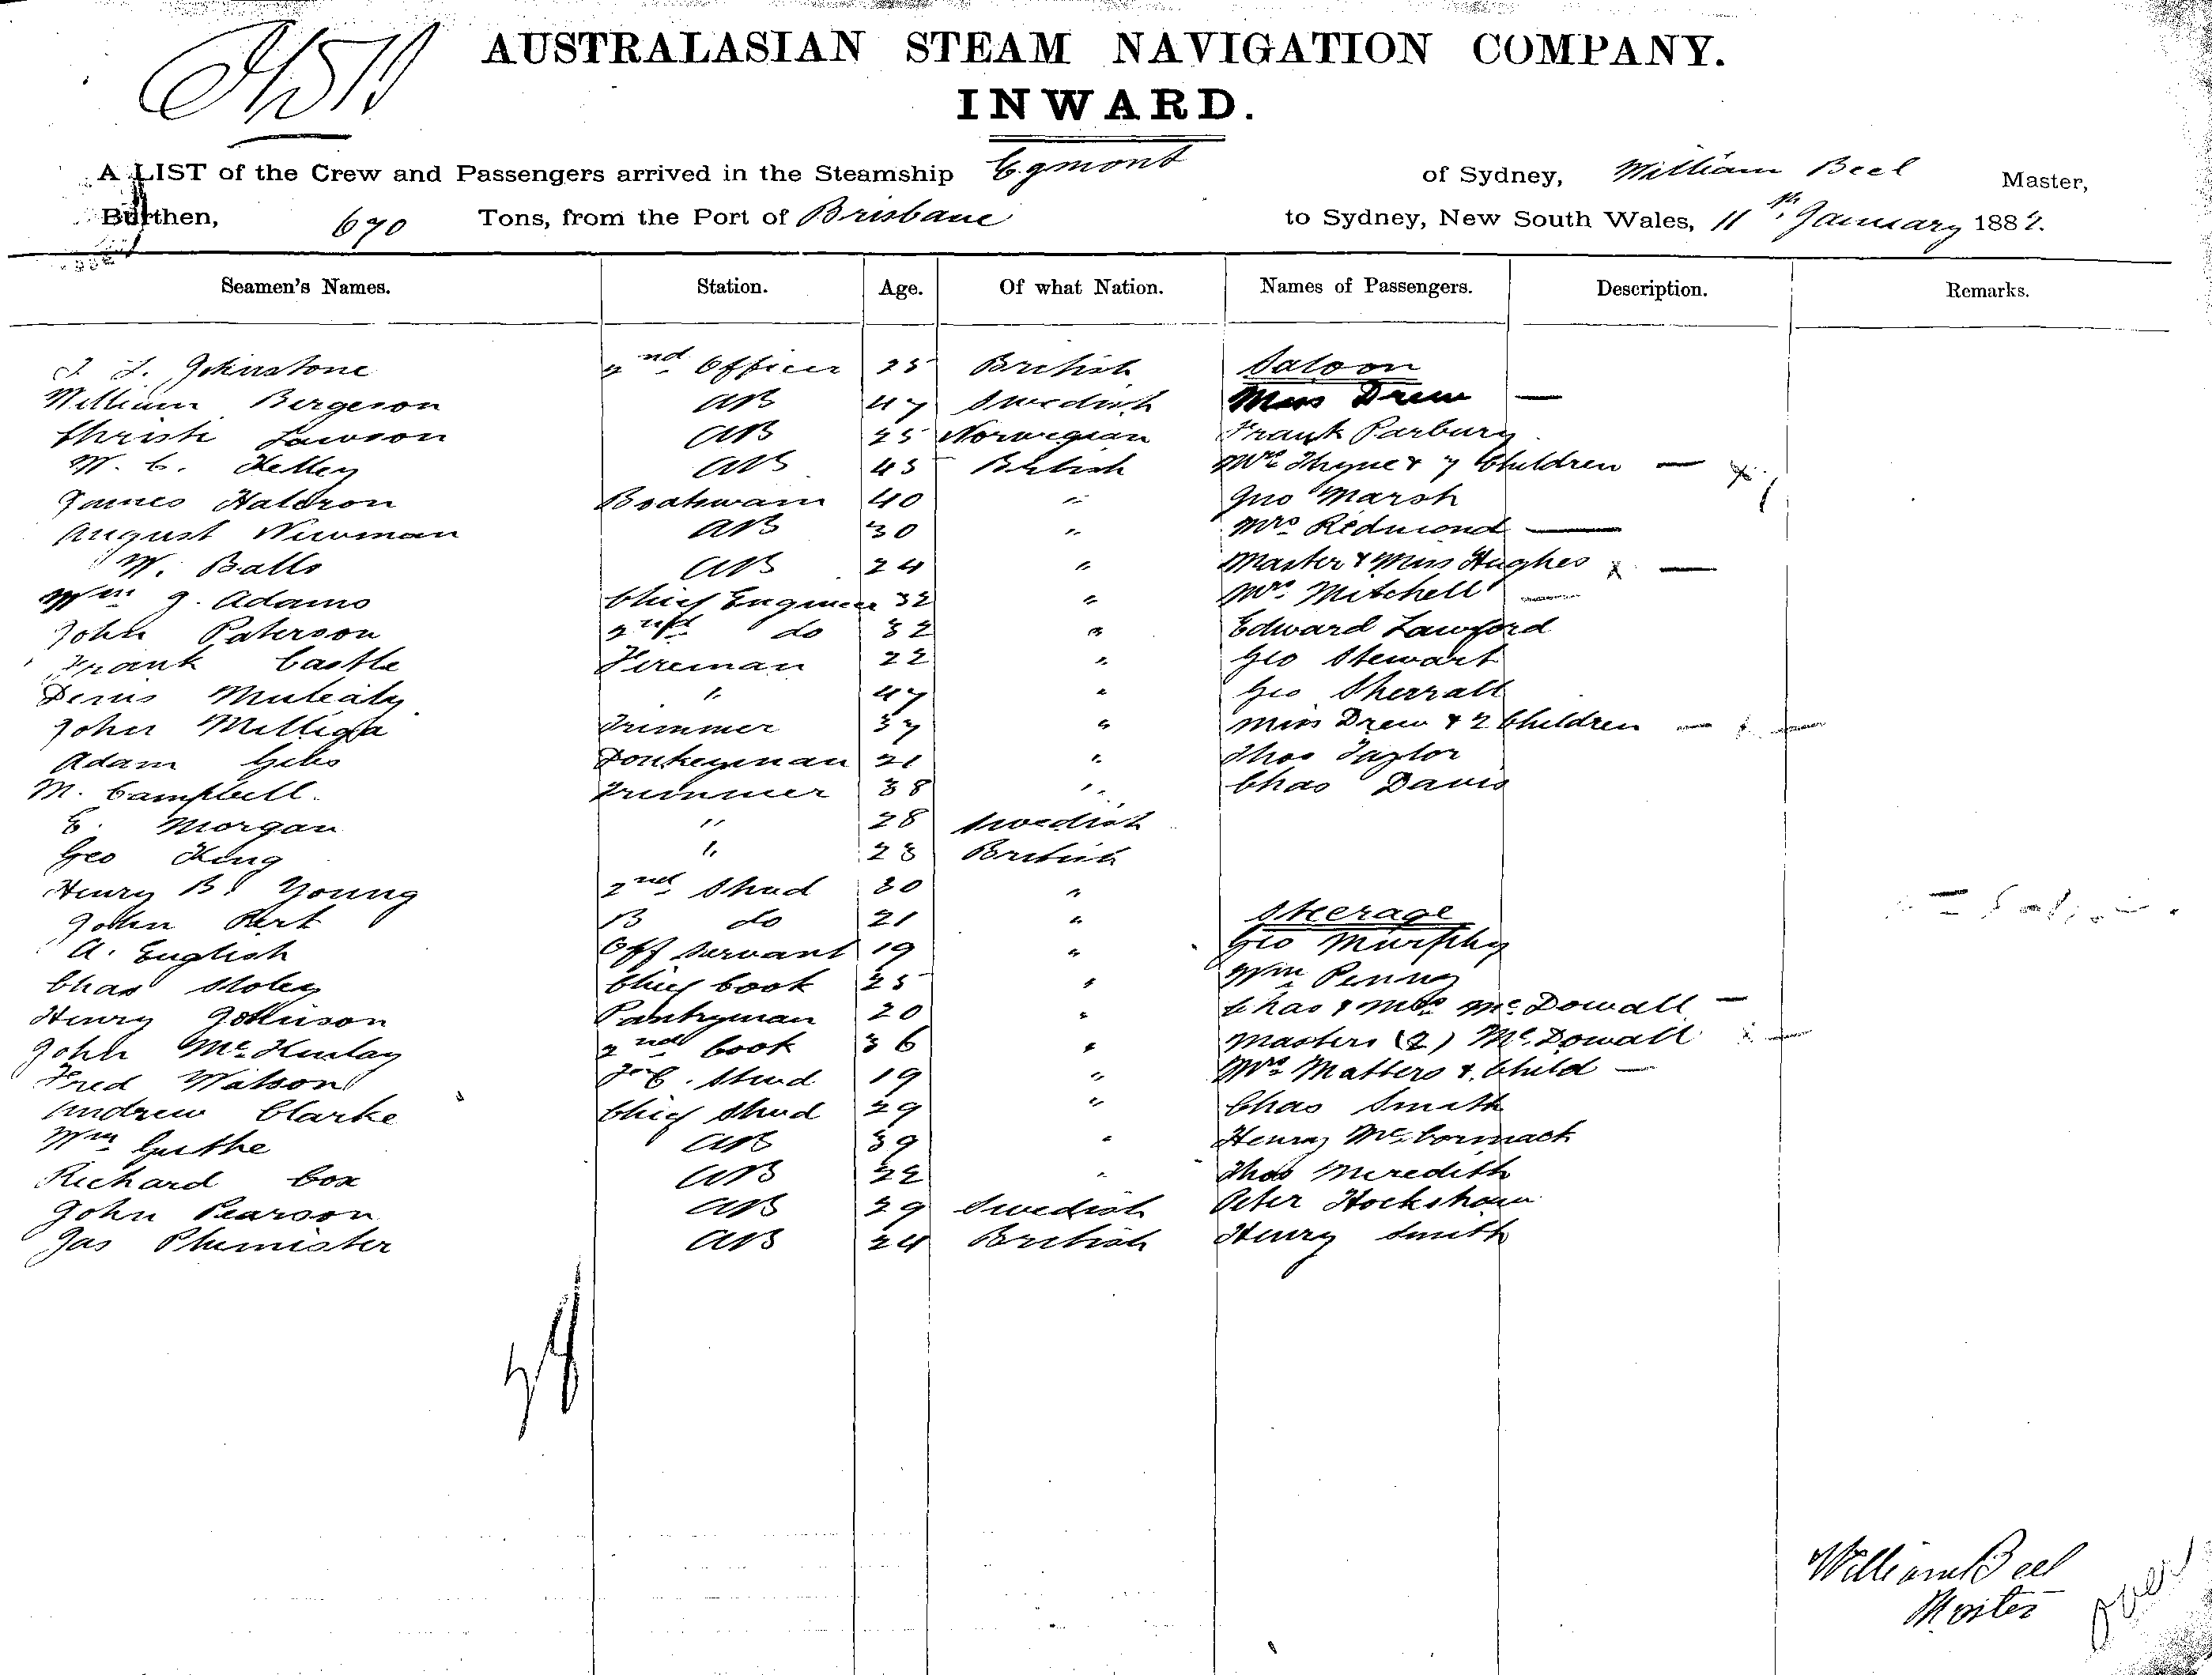 AUSTRALASIAN STEAM NAVIGATION COMPANY.
INWARD.
A LIST of the Crew and Passengers arrived in the Steamship Egmont of Sydney, William Beel Master,
Burthen, 690 Tons, from the Port of Brisbane to Sydney, New South Wales, 11th January 1882.
Seamen's Names. Station. Age. Of what Nation. Names of Passengers. Description. Remarks.
J. J. Johnstone 2nd Officer 25 British Saloon
William Bergeson AB 47 Swedish Miss Drew —
Christ Lawson AB 25 Norwegian Frank Parbury
W. C. Kelley AB 45 British Mrs Thyne & 7 Children —
James Haldron Boatswain 40 " Jno Marsh
August Newman AB 30 " Mrs Redmond —
W. Balls AB 24 " Master & Miss Hughes x —
Wm J. Adams Chief Engineer 32 " Mrs Mitchell —
John Paterson 2nd do 32 " Edward Lawford
Frank Castle Fireman 22 " Geo Stewart
Denis Mulcahy " 47 " Geo Sherratt
John Milliga Trimmer 37 " Miss Drew & 2 Children —
Adam Giles Donkeyman 21 " Thos Taylor
M. Campbell. Trimmer 38 " Chas Davis
E. Morgan " 28 Swedish
Geo King " 23 British
Henry B. Young 2nd Stwd 30 "
John Pert B do 21 " Steerage
A. English Off Servant 19 " Geo Murphy
Chas Moley Chief Cook 25 " Wm Penny
Henry Johnson Pantryman 20 " Chas & Mrs McDowall —
John McKinlay 2nd Cook 36 " Masters (2) McDowall
Fred Watson F.C. Stwd 19 " Mrs Matters & Child —
Andrew Clarke Chief Stwd 29 " Chas Smith
Wm Guthe AB 39 " Henry McCormack
Richard Cox AB 22 " Thos Meredith
John Pearson AB 29 Swedish Peter Hockshaw
Jas Phemister AB 24 British Henry Smith
William Beel
Master